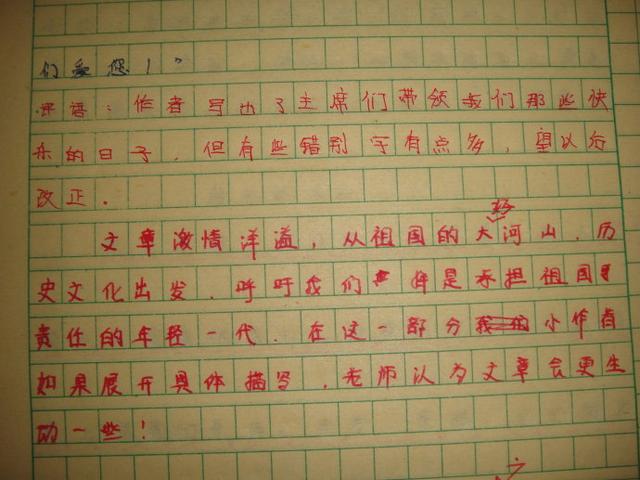 们爱您!"
评语:作者写出了主席们带领我们那些快
乐的日子,但有些错别字有点多,望以后
改正.
文章激情洋溢,从祖国的大好河山、历
史文化出发,呼吁我们是承担祖国
责任的年轻一代.在这一部分小作者
如果展开具体描写,老师认为文章会更生
动一些!